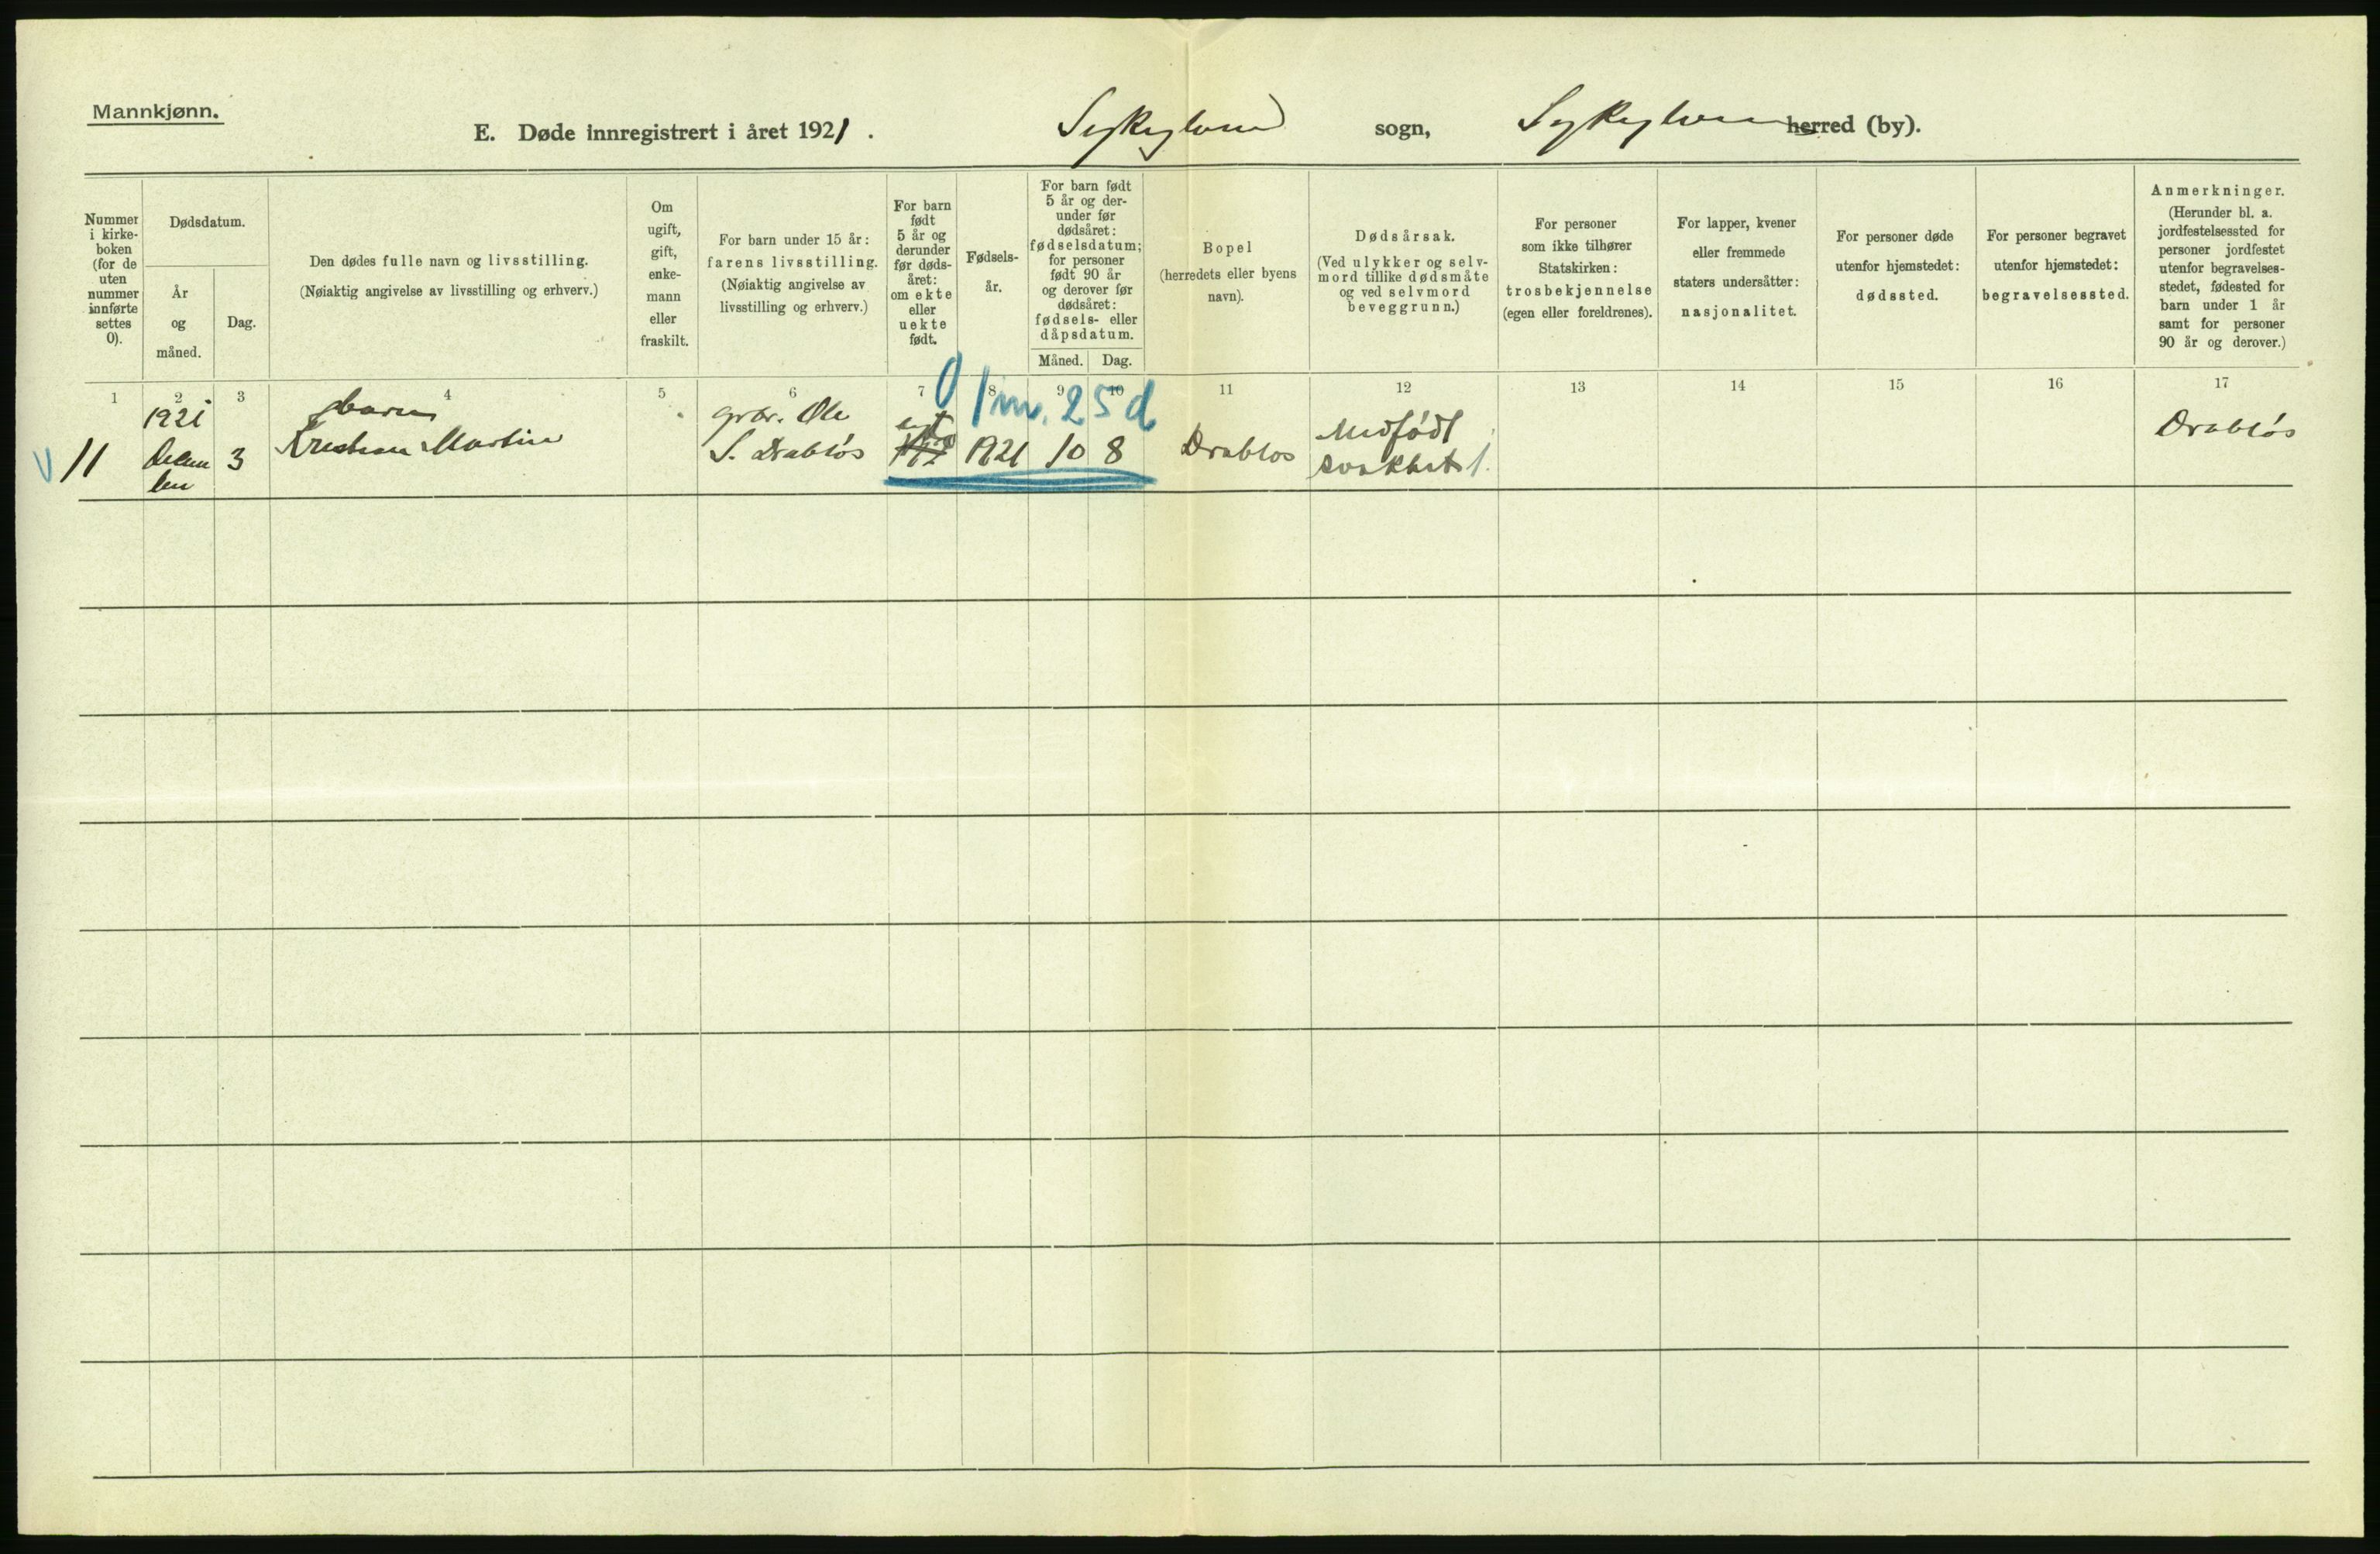 Mannkjønn.
E. Døde innregistrert i året 1921. Sykylven sogn, Sykylven herred (by).
Nummer i kirke-boken (for de uten nummer innførte settes 0).
Dødsdatum.
År og måned.
Dag.
Den dødes fulle navn og livsstilling.
(Nøiaktig angivelse av livsstilling og erhverv.)
Om ugift, gift, enke-mann eller fraskilt.
For barn under 15 år: farens livsstilling.
(Nøiaktig angivelse av livsstilling og erhverv.)
For barn født 5 år og derunder før døds-året: om ekte eller uekte født.
Fødsels-år.
For barn født 5 år og der-under før dødsåret: fødselsdatum; for personer født 90 år og derover før dødsåret: fødsels- eller dåpsdatum.
Måned. Dag.
Bopel
(herredets eller byens navn).
Dødsårsak.
(Ved ulykker og selv-mord tillike dødsmåte og ved selvmord beveggrunn.)
For personer som ikke tilhører Statskirken: trosbekjennelse (egen eller foreldrenes).
For lapper, kvener eller fremmede staters undersåtter: nasjonalitet.
For personer døde utenfor hjemstedet: dødssted.
For personer begravet utenfor hjemstedet: begravelsessted.
Anmerkninger.
(Herunder bl. a. jordfestelsessted for personer jordfestet utenfor begravelses-stedet, fødested for barn under 1 år samt for personer 90 år og derover.)
1 2 3 4 5 6 7 8 9 10 11 12 13 14 15 16 17
0 1 m. 25 d
1921 barn gbr. Ole ekt Medfødt Drabløs
11 Desem 3 Kristian Martin S. Drabløs 1921 10 8 Drabløs svakhet 1.
ber